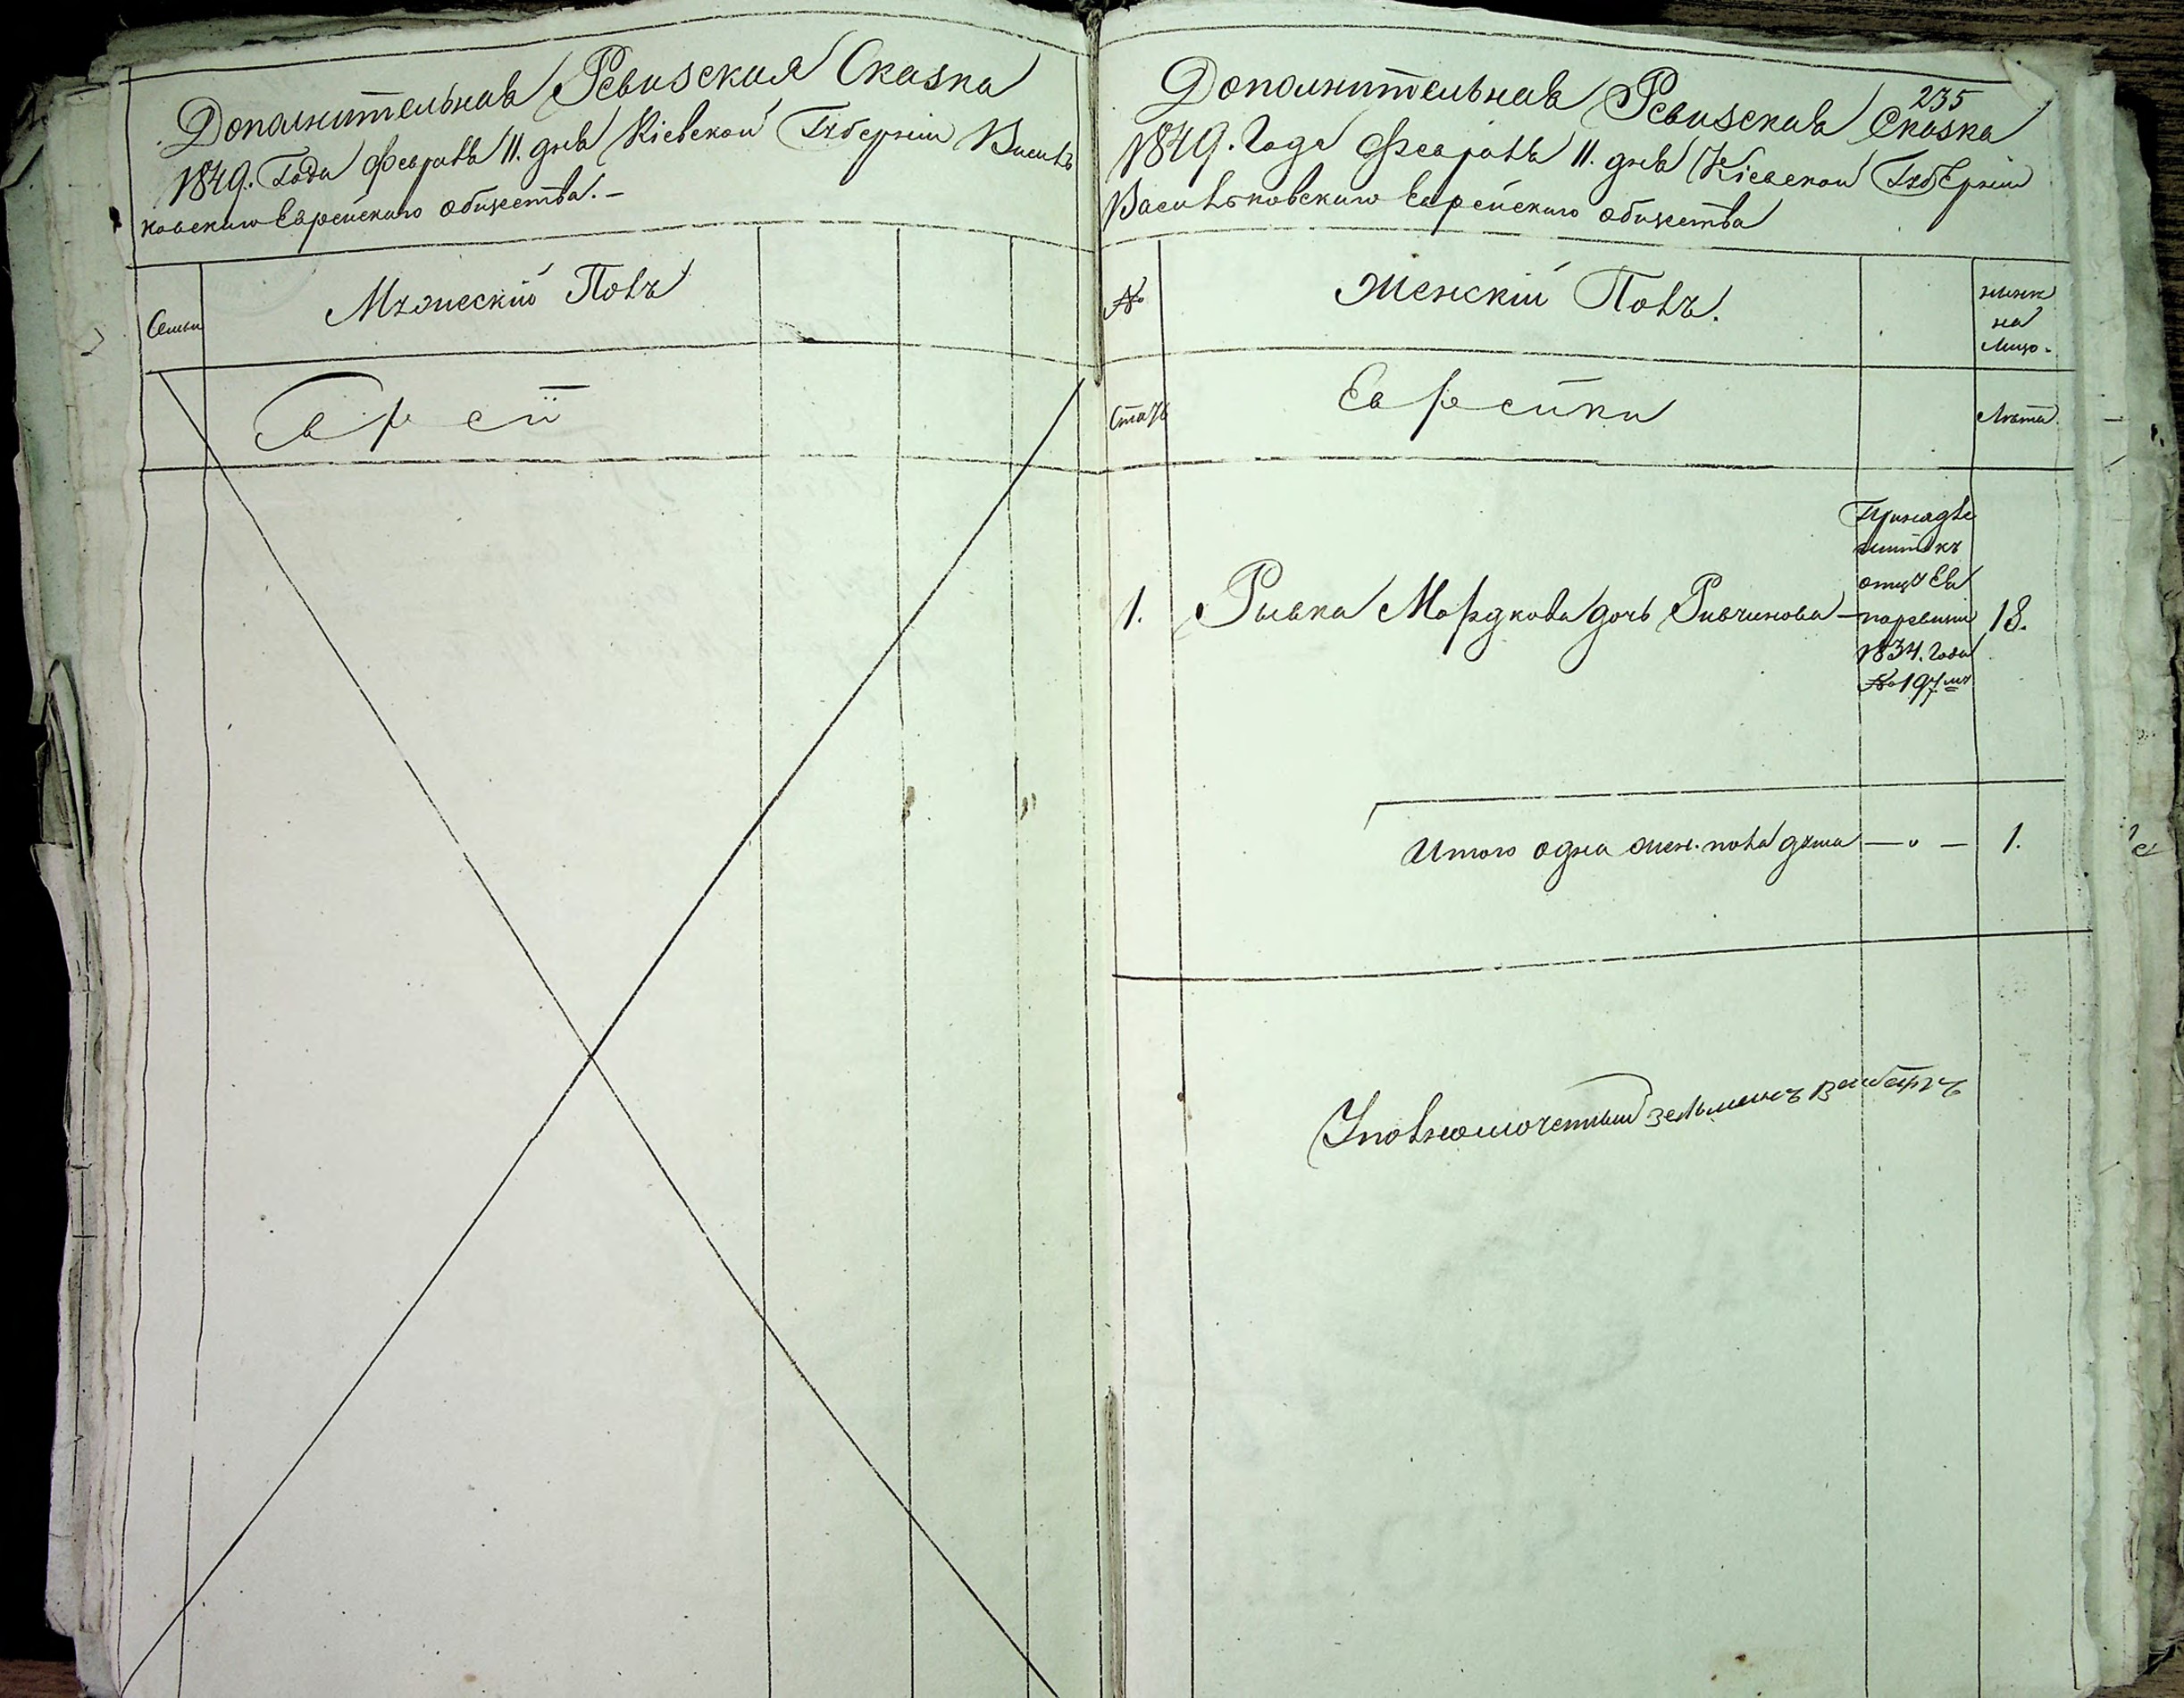 Дополнительная Ревизская Сказка
1849. Года Февраля 11. дня Кіевской Губерніи Василь
ковскаго Еврейскаго общества. –
Семьи
Мужескій Полъ
Евреи
235
Дополнительная Ревизская Сказка
1849. Года Февраля 11. дня Кіевской Губерніи
Васильковскаго Еврейскаго общества
№
Женскій Полъ.
нынѣ
на
лицо.
Еврейки
Лѣта
Принадле
житъ къ
отцу Ея
по ревизіи
1834. Года
№ 197
1. Рывка Мордкова дочь Ривчинова – 18.
Итого одна жен. пола душа — „ — 1.
Уполномоченный Зельманъ